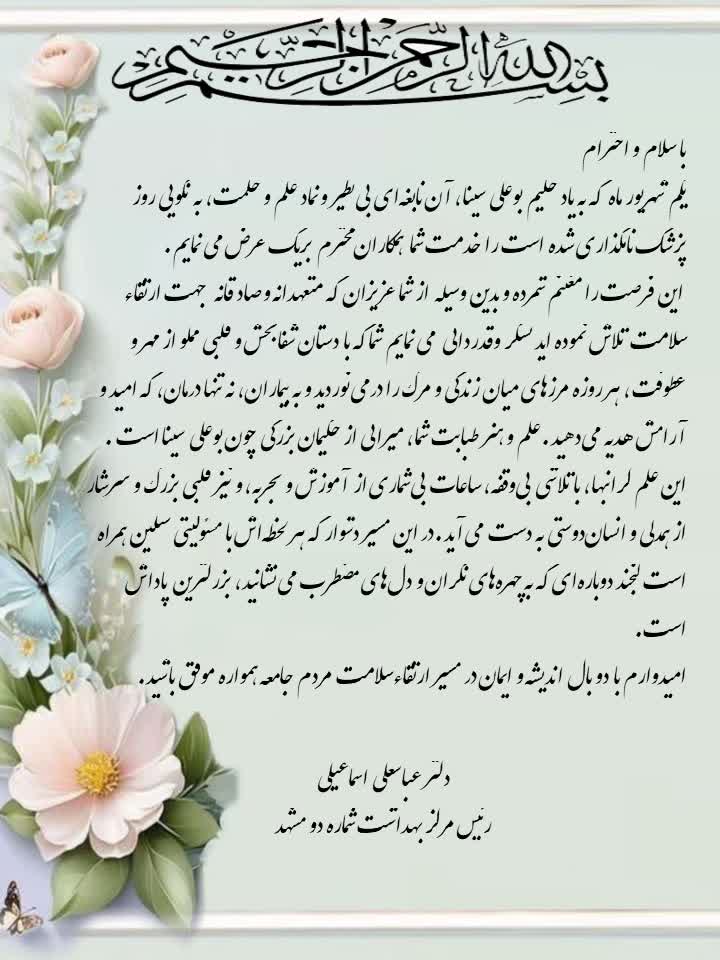 بسم الله الرحمن الرحیم
با سلام و احترام
یکم شهریور ماه که به یاد حکیم بوعلی سینا، آن نابغه‌ای بی‌نظیر و نماد علم و حکمت، به نکویی روز
پزشک نامگذاری شده است را خدمت شما همکاران محترم تبریک عرض می نمایم .
این فرصت را مغتنم شمرده و بدین وسیله از شما عزیزان که متعهدانه و صادقانه جهت ارتقاء
سلامت تلاش نموده اید تشکر و قدردانی می نمایم شما که با دستان شفابخش و قلبی مملو از مهر و
عطوفت، هر روزه مرزهای میان زندگی و مرگ را درمی‌نوردید و به بیماران، نه تنها درمان، که امید و
آرامش هدیه می‌دهید . علم و هنر طبابت شما، میراثی از حکیمان بزرگی چون بوعلی سینا است .
این علم گرانبها، با تلاشی بی‌وقفه، ساعات بی‌شماری از آموزش و تجربه، و نیز قلبی بزرگ و سرشار
از همدلی و انسان‌دوستی به دست می آید . در این مسیر دشوار که هر لحظه‌اش با مسئولیتی سنگین همراه
است لبخند دوباره‌ای که به چهره‌های نگران و دل‌های مضطرب می‌نشانید، بزرگترین پاداش
است.
امیدوارم با دو بال اندیشه و ایمان در مسیر ارتقاء سلامت مردم جامعه همواره موفق باشید.
دکتر عباسعلی اسماعیلی
رئیس مرکز بهداشت شماره دو مشهد